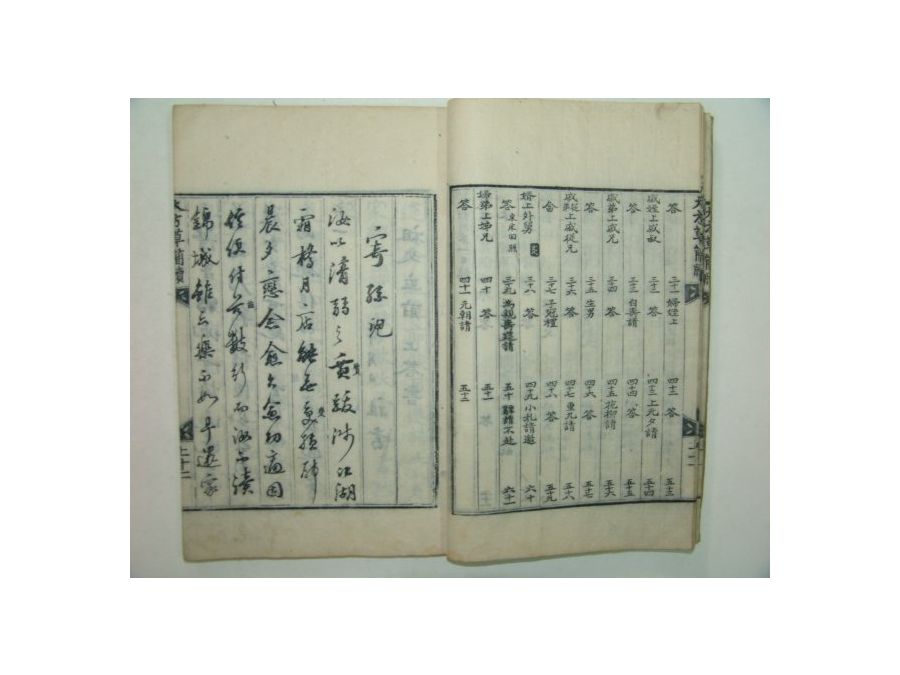 答 三十一 婦姪上 四十三 答 五十三
戚姪上戚叔 三十二 答 四十三 上元夕請 五十四
答 三十三 白戰請 四十四 答 五十五
戚弟上戚兄 三十四 答 四十五 花柳請 五十六
答 三十五 生男 四十六 答 五十七
戚從上戚從兄 三十六 答 四十七 重九請 五十八
答 三十七 子冠禮 四十八 答 五十九
婿上外舅 三十八 答 四十九 小札請邀 六十
答 三十九 為親壽筵請 五十 辭請不赴 六十一
婦弟上姊兄 四十 答 五十一
答 四十一 元朝請 五十二
寄
汝以清弱之質跋涉江湖
霜橋月店能無憂損耶
晨夕戀念愈久愈切適因
便付數行而汝不讀
錦城雖云樂不如早還家
草簡牘